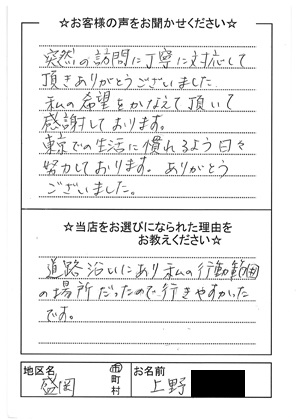 ☆お客様の声をお聞かせください☆
突然の訪問に丁寧に対応して
頂きありがとうございました
私の希望をかなえて頂いて
感謝しております。
東京での生活に慣れるよう日々
努力しております。ありがとう
ございました。
☆当店をお選びになられた理由を
お教えください☆
道路沿いにあり私の行動範囲
の場所だったので行きやすかった
です。
地区名 市町村 お名前
盛岡 上野